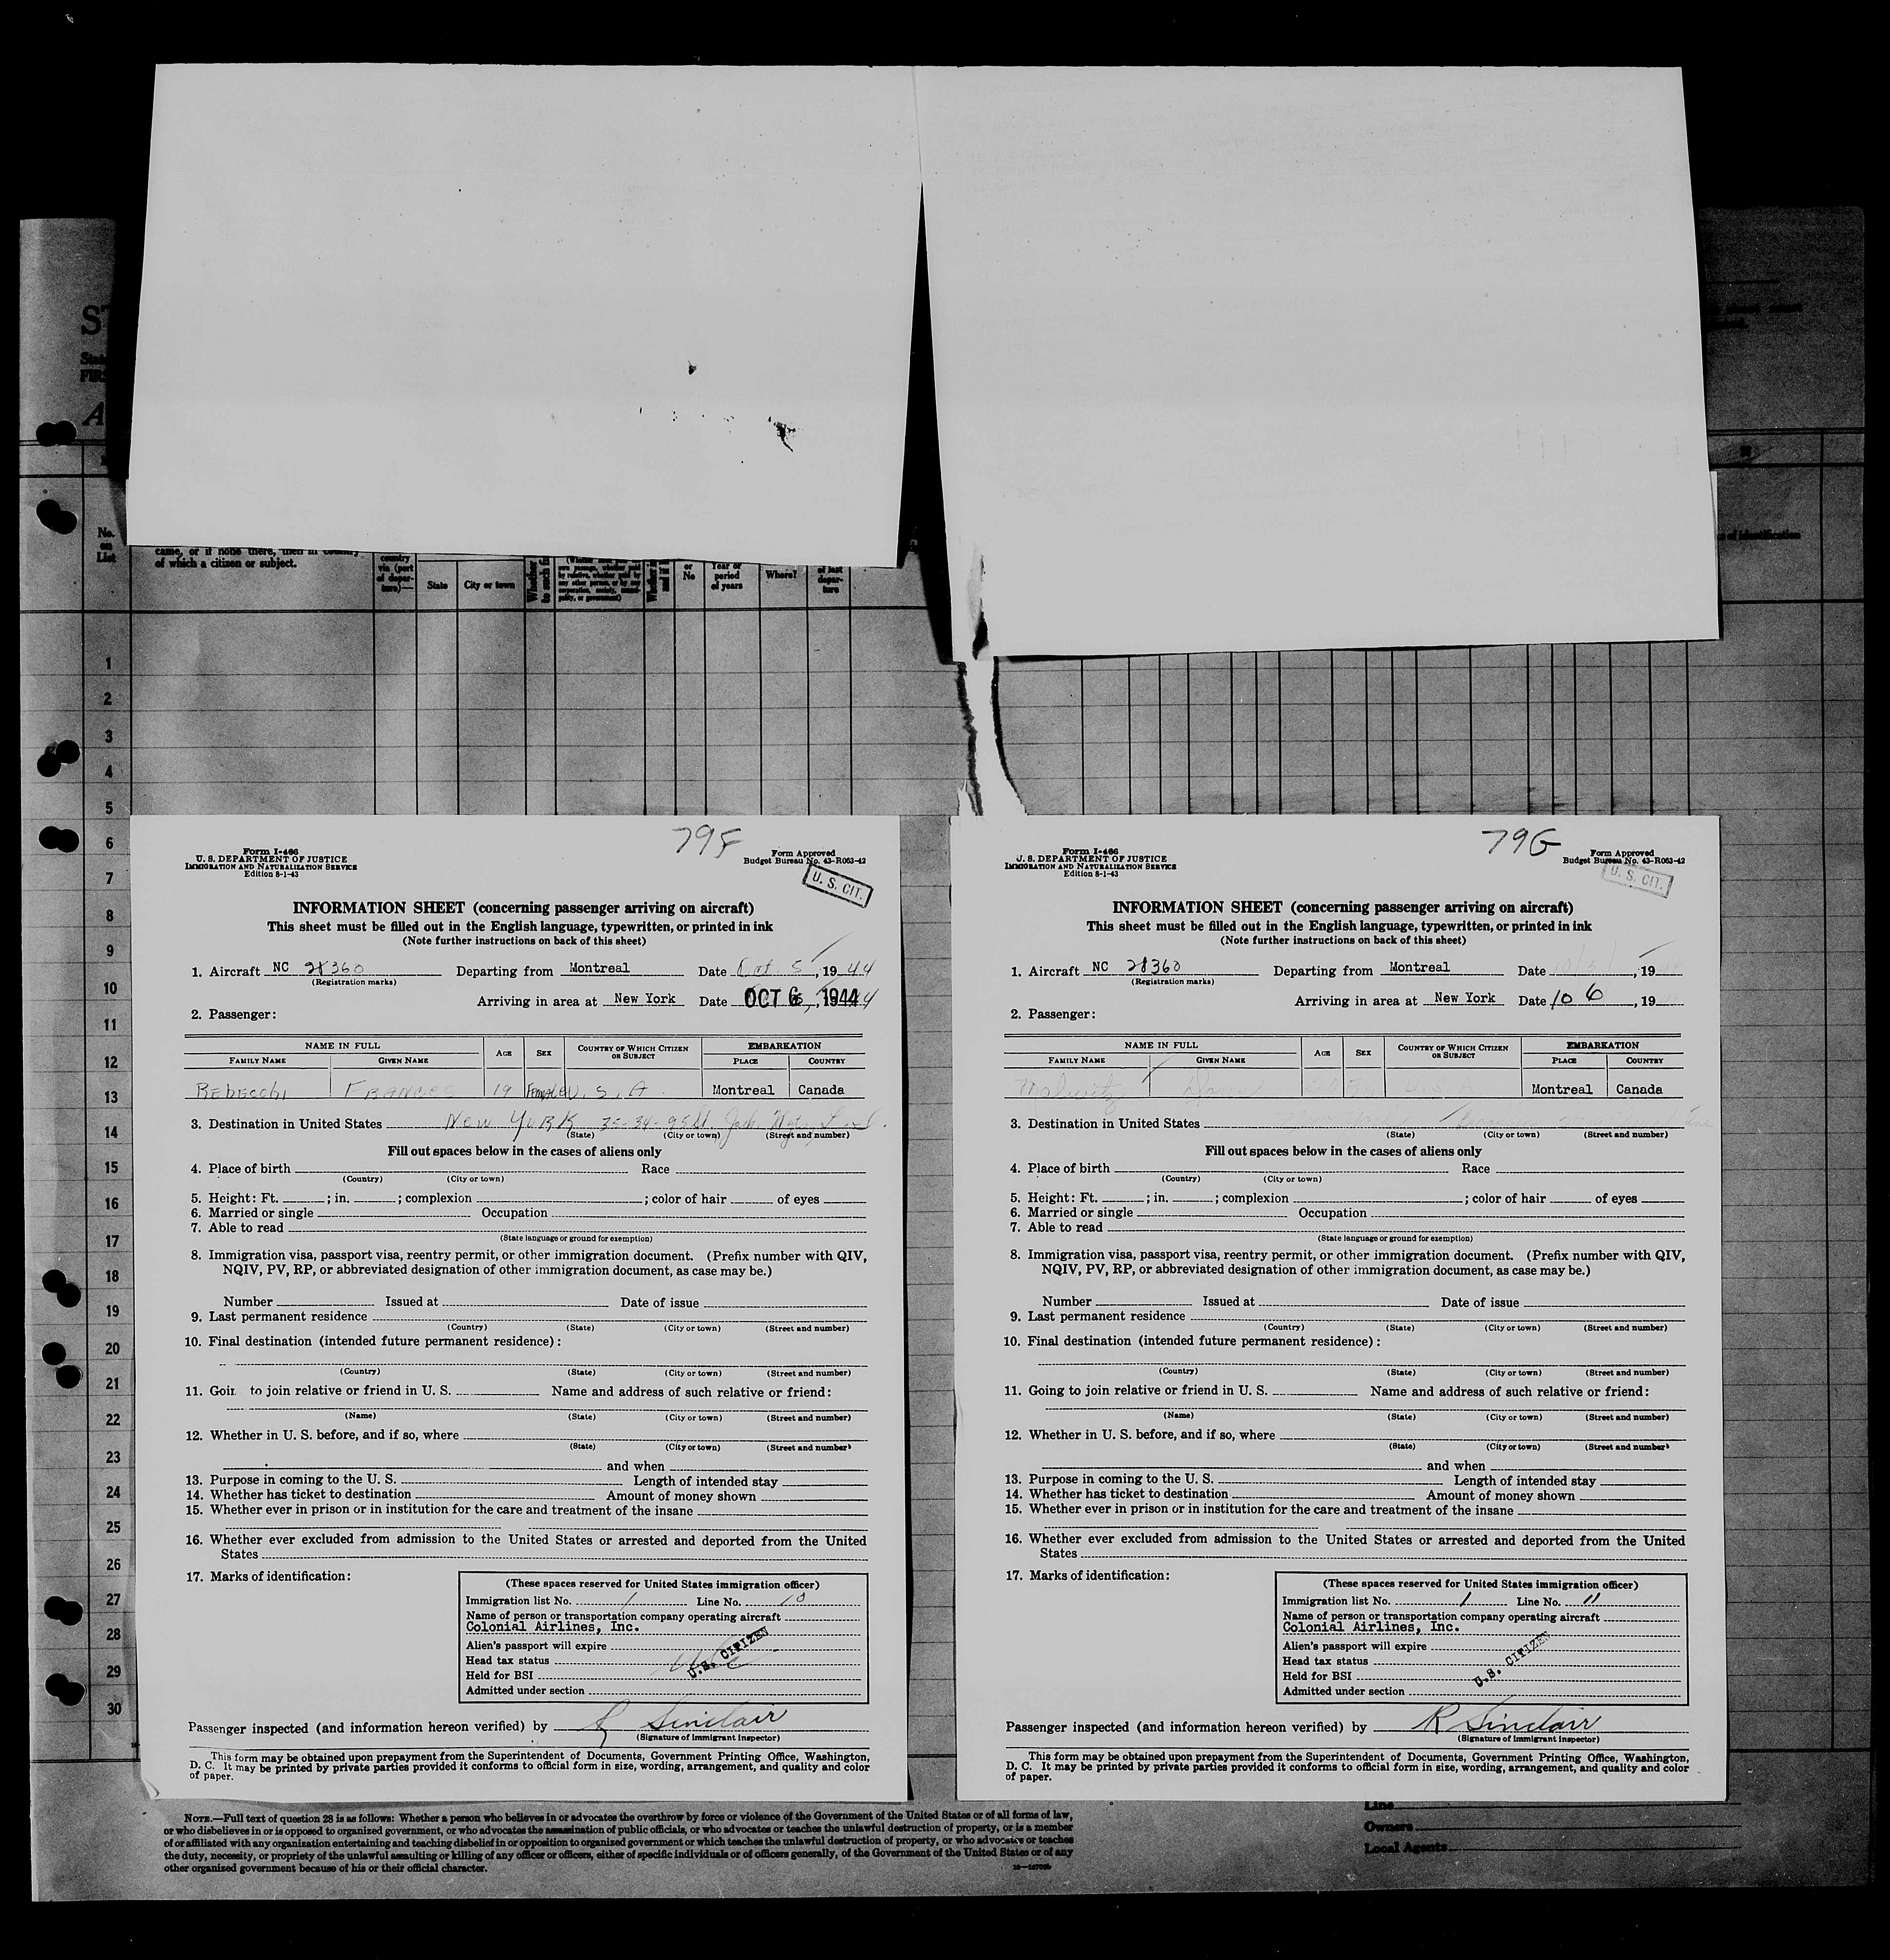 ST
FIR
A
No.
on
List
came, or if none there, then in country
of which a citizen or subject.
country
via (port
of depar-
ture)—
State
City or town
or
No
Year or
period
of years
Where?
of last
depar-
ture
of identification
1
2
3
4
5
6
7
8
9
10
11
12
13
14
15
16
17
18
19
20
21
22
23
24
25
26
27
28
29
30
79F
Form I-466
U. S. DEPARTMENT OF JUSTICE
IMMIGRATION AND NATURALIZATION SERVICE
Edition 8-1-43
Form Approved
Budget Bureau No. 43-R063-42
U. S. CIT.
INFORMATION SHEET (concerning passenger arriving on aircraft)
This sheet must be filled out in the English language, typewritten, or printed in ink
(Note further instructions on back of this sheet)
1. Aircraft NC 28360 Departing from Montreal Date Oct. 5, 1944
(Registration marks)
Arriving in area at New York Date OCT 6, 1944
2. Passenger:
NAME IN FULL AGE SEX COUNTRY OF WHICH CITIZEN OR SUBJECT EMBARKATION
FAMILY NAME GIVEN NAME PLACE COUNTRY
REBECCHI FRANCES 19 Female U. S. A. Montreal Canada
3. Destination in United States New York 35-34-95 St. Jack.
(State) (City or town) (Street and number)
Fill out spaces below in the cases of aliens only
4. Place of birth Race
(Country) (City or town)
5. Height: Ft. ; in. ; complexion ; color of hair of eyes
6. Married or single Occupation
7. Able to read
(State language or ground for exemption)
8. Immigration visa, passport visa, reentry permit, or other immigration document. (Prefix number with QIV,
NQIV, PV, RP, or abbreviated designation of other immigration document, as case may be.)
Number Issued at Date of issue
9. Last permanent residence
(Country) (State) (City or town) (Street and number)
10. Final destination (intended future permanent residence):
(Country) (State) (City or town) (Street and number)
11. Goin to join relative or friend in U. S. Name and address of such relative or friend:
(Name) (State) (City or town) (Street and number)
12. Whether in U. S. before, and if so, where
(State) (City or town) (Street and number)
and when
13. Purpose in coming to the U. S. Length of intended stay
14. Whether has ticket to destination Amount of money shown
15. Whether ever in prison or in institution for the care and treatment of the insane
16. Whether ever excluded from admission to the United States or arrested and deported from the United
States
17. Marks of identification:
(These spaces reserved for United States immigration officer)
Immigration list No. 1 Line No. 10
Name of person or transportation company operating aircraft
Colonial Airlines, Inc.
Alien's passport will expire
Head tax status
U.S. CITIZEN
Held for BSI
Admitted under section
Passenger inspected (and information hereon verified) by R Sinclair
(Signature of immigrant inspector)
This form may be obtained upon prepayment from the Superintendent of Documents, Government Printing Office, Washington,
D. C. It may be printed by private parties provided it conforms to official form in size, wording, arrangement, and quality and color
of paper.
79G
Form I-466
U. S. DEPARTMENT OF JUSTICE
IMMIGRATION AND NATURALIZATION SERVICE
Edition 8-1-43
Form Approved
Budget Bureau No. 43-R063-42
U. S. CIT.
INFORMATION SHEET (concerning passenger arriving on aircraft)
This sheet must be filled out in the English language, typewritten, or printed in ink
(Note further instructions on back of this sheet)
1. Aircraft NC 28360 Departing from Montreal Date 10/5/, 19
(Registration marks)
Arriving in area at New York Date 10 6, 19
2. Passenger:
NAME IN FULL AGE SEX COUNTRY OF WHICH CITIZEN OR SUBJECT EMBARKATION
FAMILY NAME GIVEN NAME PLACE COUNTRY
Montreal Canada
3. Destination in United States
(State) (City or town) (Street and number)
Fill out spaces below in the cases of aliens only
4. Place of birth Race
(Country) (City or town)
5. Height: Ft. ; in. ; complexion ; color of hair of eyes
6. Married or single Occupation
7. Able to read
(State language or ground for exemption)
8. Immigration visa, passport visa, reentry permit, or other immigration document. (Prefix number with QIV,
NQIV, PV, RP, or abbreviated designation of other immigration document, as case may be.)
Number Issued at Date of issue
9. Last permanent residence
(Country) (State) (City or town) (Street and number)
10. Final destination (intended future permanent residence):
(Country) (State) (City or town) (Street and number)
11. Going to join relative or friend in U. S. Name and address of such relative or friend:
(Name) (State) (City or town) (Street and number)
12. Whether in U. S. before, and if so, where
(State) (City or town) (Street and number)
and when
13. Purpose in coming to the U. S. Length of intended stay
14. Whether has ticket to destination Amount of money shown
15. Whether ever in prison or in institution for the care and treatment of the insane
16. Whether ever excluded from admission to the United States or arrested and deported from the United
States
17. Marks of identification:
(These spaces reserved for United States immigration officer)
Immigration list No. 1 Line No. 11
Name of person or transportation company operating aircraft
Colonial Airlines, Inc.
Alien's passport will expire
Head tax status
U.S. CITIZEN
Held for BSI
Admitted under section
Passenger inspected (and information hereon verified) by R Sinclair
(Signature of immigrant inspector)
This form may be obtained upon prepayment from the Superintendent of Documents, Government Printing Office, Washington,
D. C. It may be printed by private parties provided it conforms to official form in size, wording, arrangement, and quality and color
of paper.
NOTE.—Full text of question 28 is as follows: Whether a person who believes in or advocates the overthrow by force or violence of the Government of the United States or of all forms of law,
or who disbelieves in or is opposed to organized government, or who advocates the assassination of public officials, or who advocates or teaches the unlawful destruction of property, or is a member
of or affiliated with any organization entertaining and teaching disbelief in or opposition to organized government or which teaches the unlawful destruction of property, or who advocates or teaches
the duty, necessity, or propriety of the unlawful assaulting or killing of any officer or officers, either of specific individuals or of officers generally, of the Government of the United States or of any
other organized government because of his or their official character.
Line
Owners
Local Agents